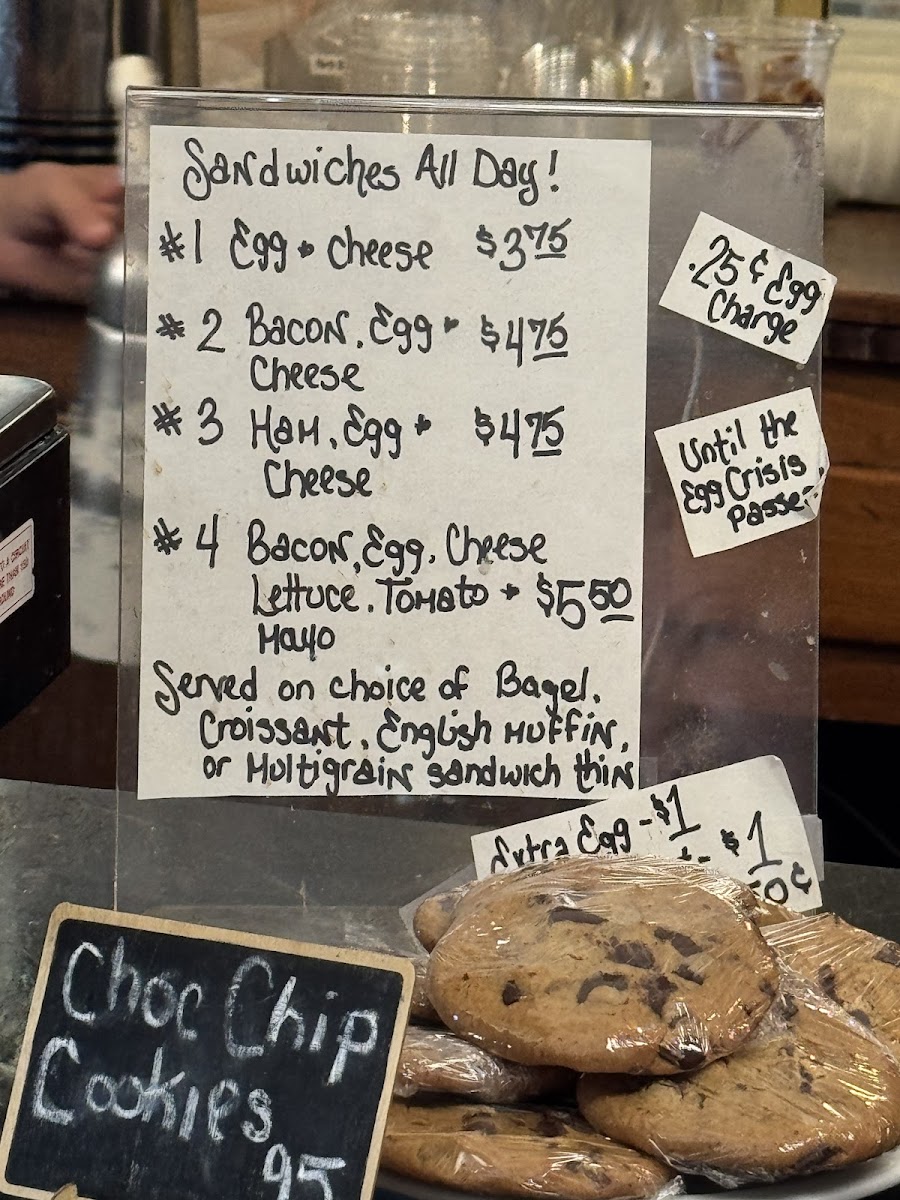 Sandwiches All Day!
#1 Egg & Cheese $3.75
#2 Bacon, Egg & $4.75
Cheese
#3 Ham, Egg & $4.75
Cheese
#4 Bacon, Egg, Cheese
Lettuce, Tomato & $5.50
Mayo
Served on choice of Bagel,
Croissant, English Muffin,
or Multigrain sandwich thin
.25¢ Egg
Charge
Until the
Egg Crisis
Passes
Extra Egg - $1
$1
50¢
Choc Chip
Cookies
95